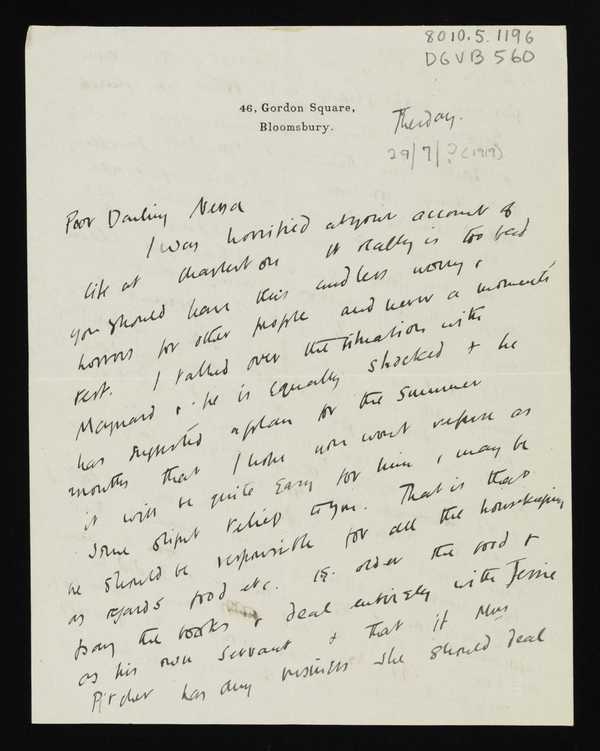 8010.5.1196
DGVB 560
46, Gordon Square,
Bloomsbury.
Thursday.
29/7/? (1919)
Poor Darling Nessa
I was horrified at your account of
life at Charleston it really is too bad
you should have this endless worry &
horrors for other people and never a moments
rest. I talked over the situation with
Maynard & he is equally shocked & he
has suggested a plan for the summer
months that I hope you wont refuse as
it will be quite easy for him & may be
some slight relief to you. That is that
he should be responsible for all the housekeeping
as regards food etc. ie. order the food &
pay the books & deal entirely with Jessie
as his own servant & that if Mrs
Pitcher has any business she should deal